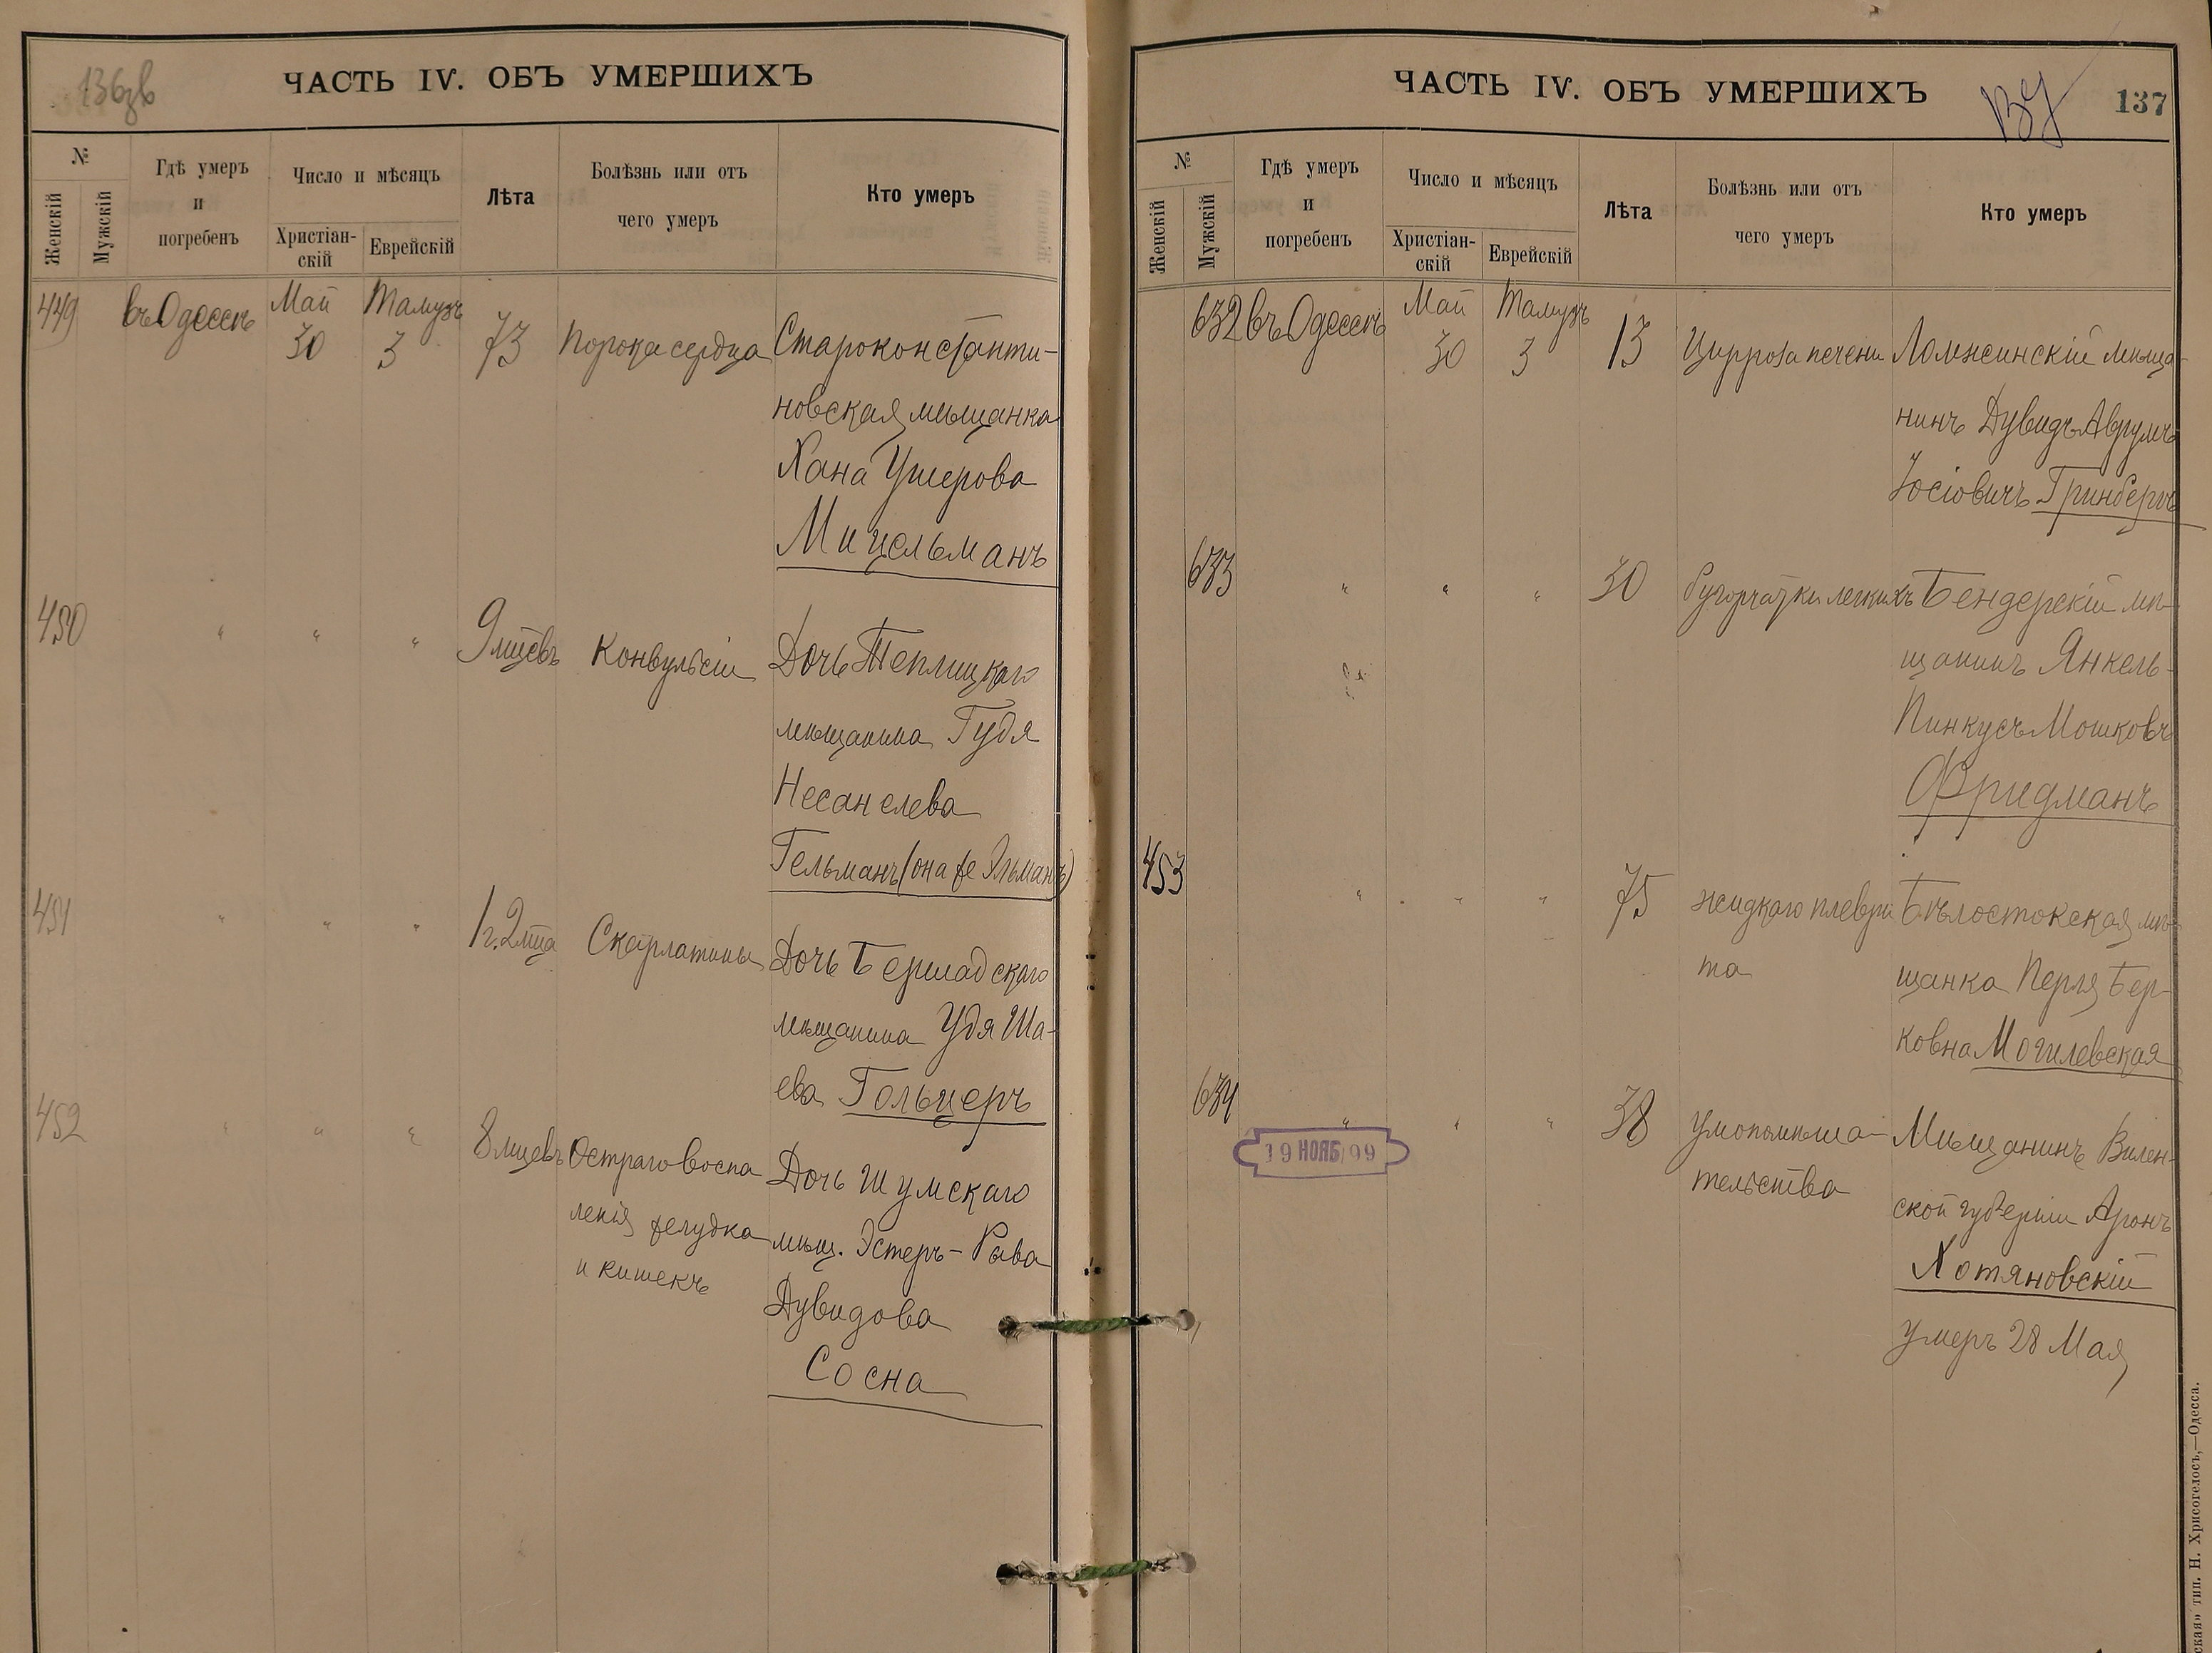 136зв
ЧАСТЬ IV. ОБЪ УМЕРШИХЪ
№
Женскій
Мужскій
Гдѣ умеръ
и
погребенъ
Число и мѣсяцъ
Христіан-
скій
Еврейскій
Лѣта
Болѣзнь или отъ
чего умеръ
Кто умеръ
449 въ Одессѣ Май 30 Тамузъ 3 73 Порока сердца Староконстанти-
новская мѣщанка
Хана Ушерова
Мицельманъ
450 " " " 9 мцевъ Конвульсіи Дочь Теплицкаго
мѣщанина Гудя
Несанелева
Гельманъ (она же Эльманъ)
451 " " " 1 г. 2 мца Скарлатины Дочь Бершадскаго
мѣщанина Удя Ша-
ева Гольцеръ
452 " " " 8 мцевъ Остраго воспа Дочь Шумскаго
ленія желудка мѣщ. Эстеръ-Рива
и кишекъ Дувидова
Сосна
ЧАСТЬ IV. ОБЪ УМЕРШИХЪ
137
№
Женскій
Мужскій
Гдѣ умеръ
и
погребенъ
Число и мѣсяцъ
Христіан-
скій
Еврейскій
Лѣта
Болѣзнь или отъ
чего умеръ
Кто умеръ
632 въ Одессѣ Май 30 Тамузъ 3 13 Цирроза печени Ломжинскій мѣща-
нинъ Дувидъ Аврумъ
Іосіовичъ Гринбергъ
633 " " " 30 бугорчатки легкихъ Бендерскій мѣ-
щанинъ Янкель-
Пинкусъ Мошковъ
Фридманъ
453 " " " 75 жидкаго плеври Бѣлостокская мѣ-
та щанка Перля Бер-
ковна Могилевская
634 " " " 38 умопомѣша- Мѣщанинъ Вилен-
тельства ской губерніи Аронъ
19 НОЯБ 99
Хотяновскій
умеръ 28 Мая
ская» тип. Н. Хрисогелосъ,—Одесса.